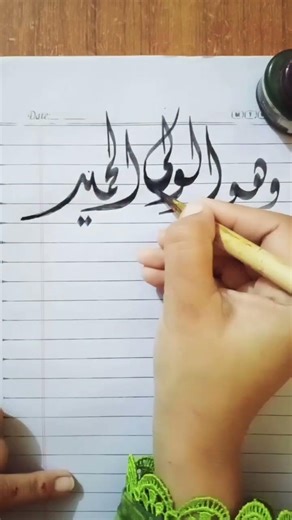 Date
وهو الولي الحميد